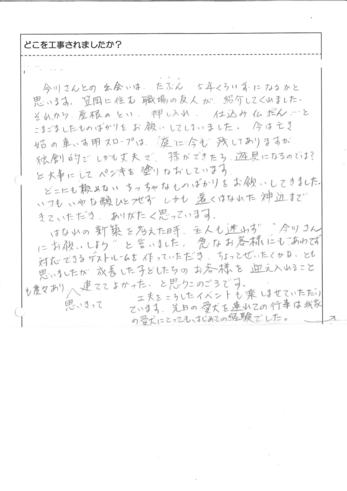 どこを工事されましたか？
今川さんとの出会いは、たぶん 5年くらいまえになるかと
思います。笠岡に住む職場の友人が紹介してくれました。
それから屋根のとい、押し入れ、仕込み仏だん…と
こまごましたものばかりをお願いしてしまいました。今は亡き
姑の車いす用スロープは、庭に今も残してありますが
独創的でしかも丈夫で、孫ができたら遊具になるのでは？
と大事にしてペンキを塗りなおしています。
どこにも頼めないちっちゃなものばかりをお願いしてきました。
いつもいやな顔ひとつせず しかも遠くはなれた神辺まで
きていただき、ありがたく思っています。
はなれの新築を考えた時、主人も迷わず "今川さん
にお願いしよう" と言いました。急なお客様にもあわてず
対応できるゲストルームを作っていただき、ちょっとぜいたくかな、とも
思いましたが成長した子どもたちのお客様を迎え入れること
も度々あり 思いきって 建ててよかった、と思うこのごろです。
工夫をこらしたイベントも楽しませていただい
ています。先日の愛犬を連れての行事は我家
の愛犬にとってもはじめての経験でした。